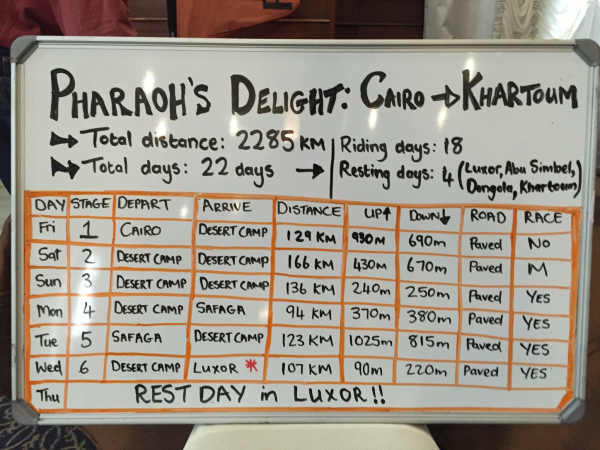 PHARAOH'S DELIGHT: CAIRO → KHARTOUM
→ Total distance: 2285 KM
→ Total days: 22 days →
Riding days: 18
Resting days: 4 (Luxor, Abu Simbel, Dongola, Khartoum)
DAY STAGE DEPART ARRIVE DISTANCE UP↑ DOWN↓ ROAD RACE
Fri 1 CAIRO DESERT CAMP 129 KM 930m 690m Paved NO
Sat 2 DESERT CAMP DESERT CAMP 166 KM 430m 670m Paved M
Sun 3 DESERT CAMP DESERT CAMP 136 KM 240m 250m Paved YES
Mon 4 DESERT CAMP SAFAGA 94 KM 370m 380m Paved YES
Tue 5 SAFAGA DESERT CAMP 123 KM 1025m 815m Paved YES
Wed 6 DESERT CAMP LUXOR * 107 KM 90m 220m Paved YES
Thu REST DAY in LUXOR!!